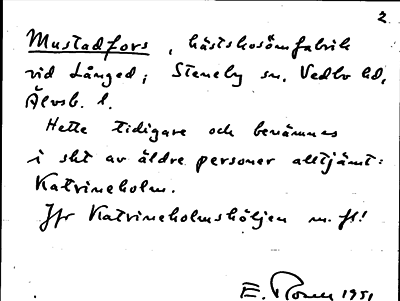 2
Mustadfors, hästskosömfabrik
vid Långed; Steneby sn, Vedbo hd,
Älvsb. l.
Hette tidigare och benämnes
i sht av äldre personer alltjämt:
Katrineholm.
Jfr Katrineholmshöljen m. fl!
E. 1951